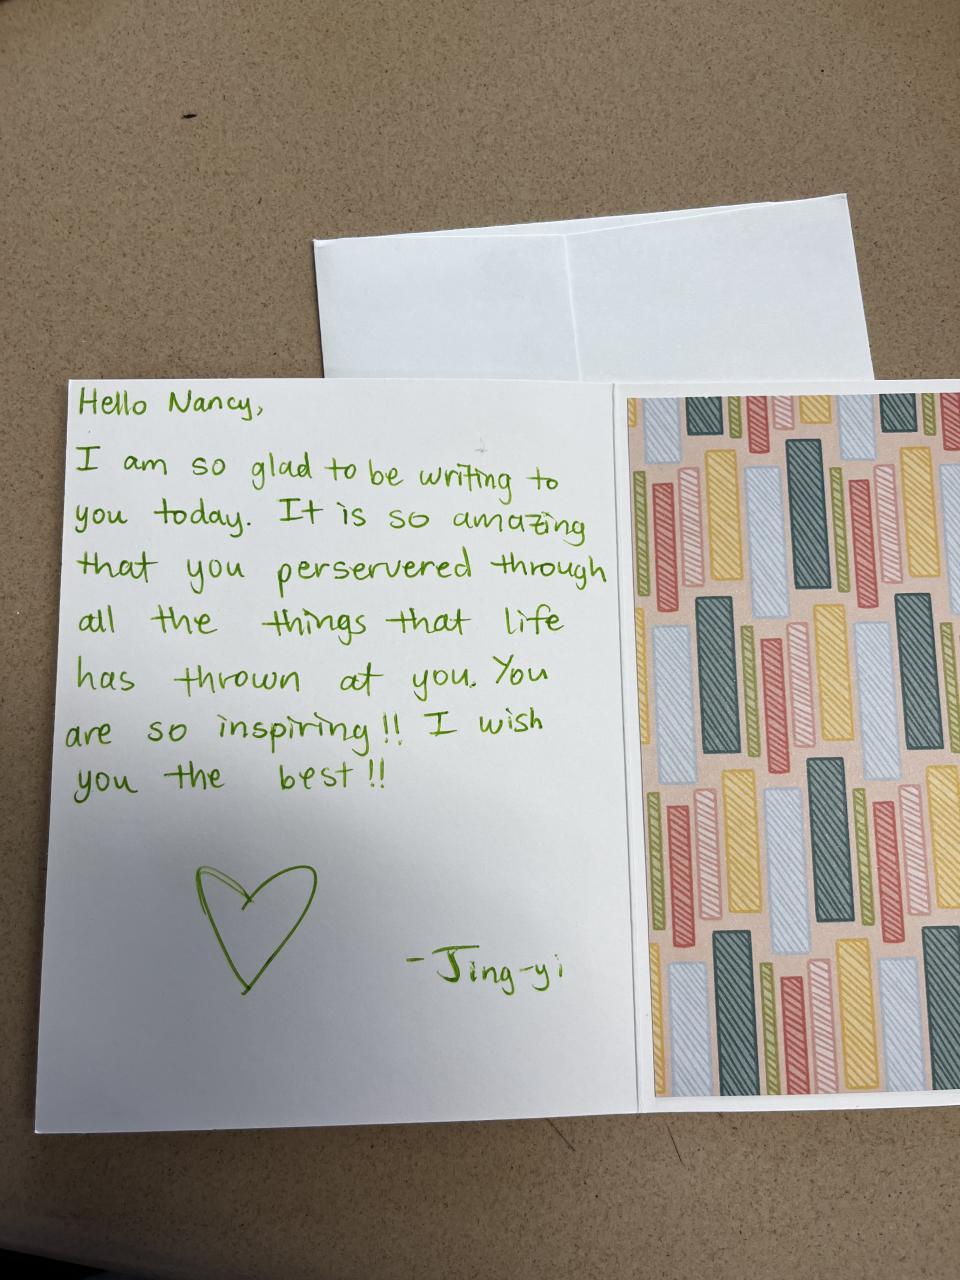 Hello Nancy,
I am so glad to be writing to
you today. It is so amazing
that you perservered through
all the things that life
has thrown at you. You
are so inspiring!! I wish
you the best!!
-Jing-yi